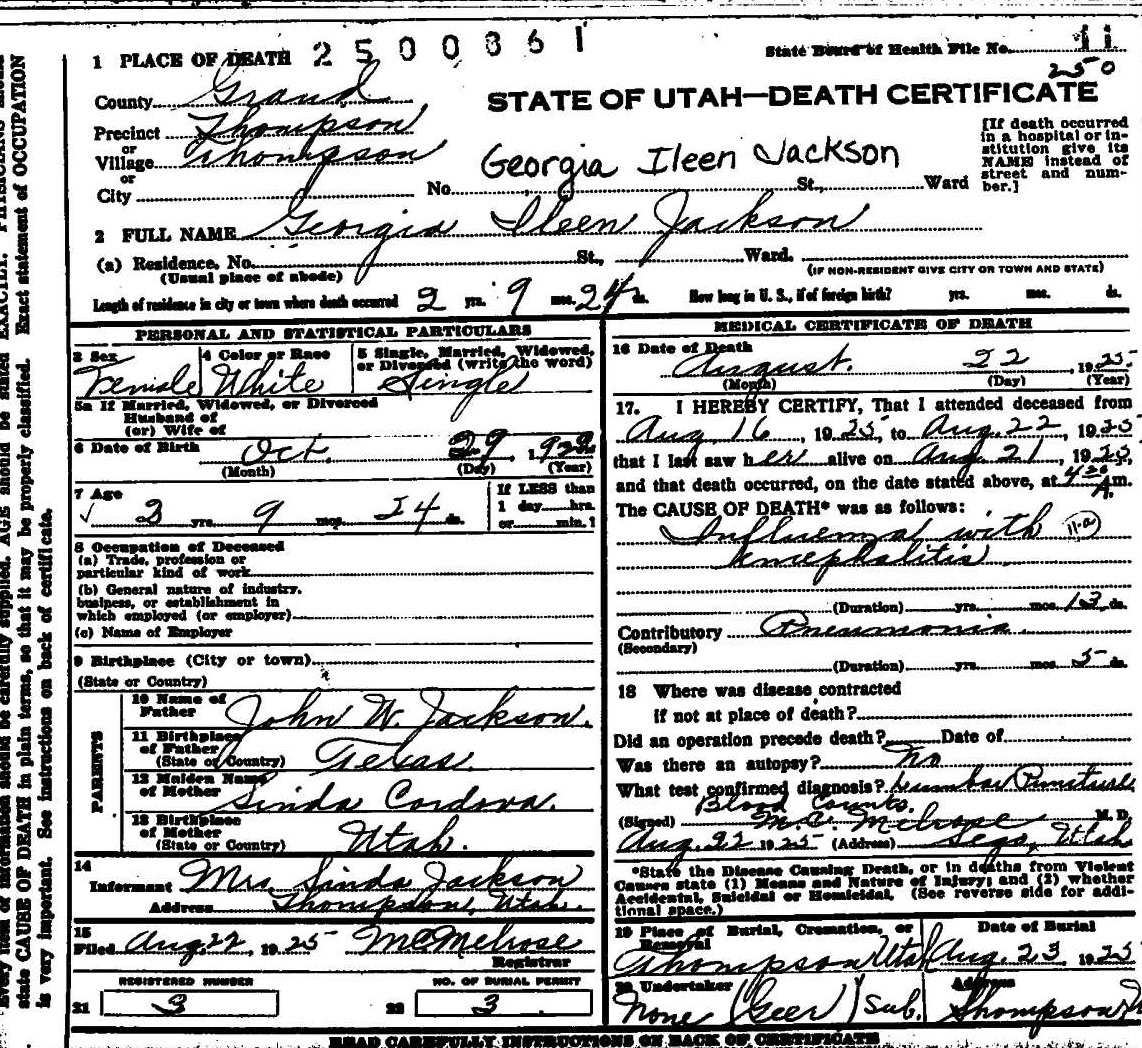 1 PLACE OF DEATH 2500061
State Board of Health File No. 11
250
County Grand
STATE OF UTAH—DEATH CERTIFICATE
Precinct Thompson
or
Village Thompson
or
City
[If death occurred
in a hospital or in-
stitution give its
NAME instead of
street and num-
ber.]
Georgia Ileen Jackson
No. St., Ward
2 FULL NAME Georgia Ileen Jackson
(a) Residence. No. St., Ward.
(Usual place of abode)
(IF NON-RESIDENT GIVE CITY OR TOWN AND STATE)
Length of residence in city or town where death occurred 2 yrs. 9 mos. 24 ds. How long in U. S., if of foreign birth? yrs. mos. ds.
PERSONAL AND STATISTICAL PARTICULARS
3 Sex
Female
4 Color or Race
White
5 Single, Married, Widowed,
or Divorced (write the word)
Single
5a If Married, Widowed, or Divorced
Husband of
(or) Wife of
6 Date of Birth Oct. 29, 192
(Month) (Day) (Year)
7 Age
2 yrs. 9 mos. 24 ds.
If LESS than
1 day hrs.
or min.?
8 Occupation of Deceased
(a) Trade, profession or
particular kind of work
(b) General nature of industry,
business, or establishment in
which employed (or employer)
(c) Name of Employer
9 Birthplace (City or town)
(State or Country)
PARENTS
10 Name of
Father John W. Jackson.
11 Birthplace
of Father
(State or Country) Texas.
12 Maiden Name
of Mother Linda Cordova.
13 Birthplace
of Mother
(State or Country) Utah.
14
Informant Mrs Linda Jackson
Address Thompson, Utah.
15
Filed Aug. 22, 1925 M C Melrose
Registrar
REGISTERED NUMBER
21 3
NO. OF BURIAL PERMIT
22 3
MEDICAL CERTIFICATE OF DEATH
16 Date of Death
August. 22, 1925
(Month) (Day) (Year)
17. I HEREBY CERTIFY, That I attended deceased from
Aug 16, 1925, to Aug. 22, 1925
that I last saw her alive on Aug. 21, 1925,
and that death occurred, on the date stated above, at 4 20 A.m.
The CAUSE OF DEATH* was as follows:
Influenzal with 11-a
encephalitis
(Duration) yrs. mos. 13 ds.
Contributory Pneumonia
(Secondary)
(Duration) yrs. mos. 5 ds.
18 Where was disease contracted
if not at place of death?
Did an operation precede death? Date of
Was there an autopsy? No
What test confirmed diagnosis? Lumbar Puncture
Blood Counts.
(Signed) M. C. Melrose M. D.
Aug. 22 1925 (Address) Sego, Utah
*State the Disease Causing Death, or in deaths from Violent
Causes state (1) Means and Nature of Injury; and (2) whether
Accidental, Suicidal or Homicidal. (See reverse side for addi-
tional space.)
19 Place of Burial, Cremation, or
Removal
Thompson Utah
Date of Burial
Aug. 23 1925
20 Undertaker
None (Geer) Sub.
Address
Thompson
READ CAREFULLY INSTRUCTIONS ON BACK OF CERTIFICATE
Every item of information should be carefully supplied. AGE should be stated EXACTLY. PHYSICIANS should
state CAUSE OF DEATH in plain terms, so that it may be properly classified. Exact statement of OCCUPATION
is very important. See instructions on back of certificate.